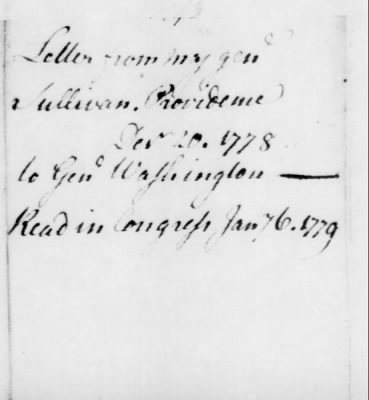 Letter from maj genl
Sullivan. Providence
Decr 20. 1778
to Genl Washington —
Read in Congress Jany 6. 1779